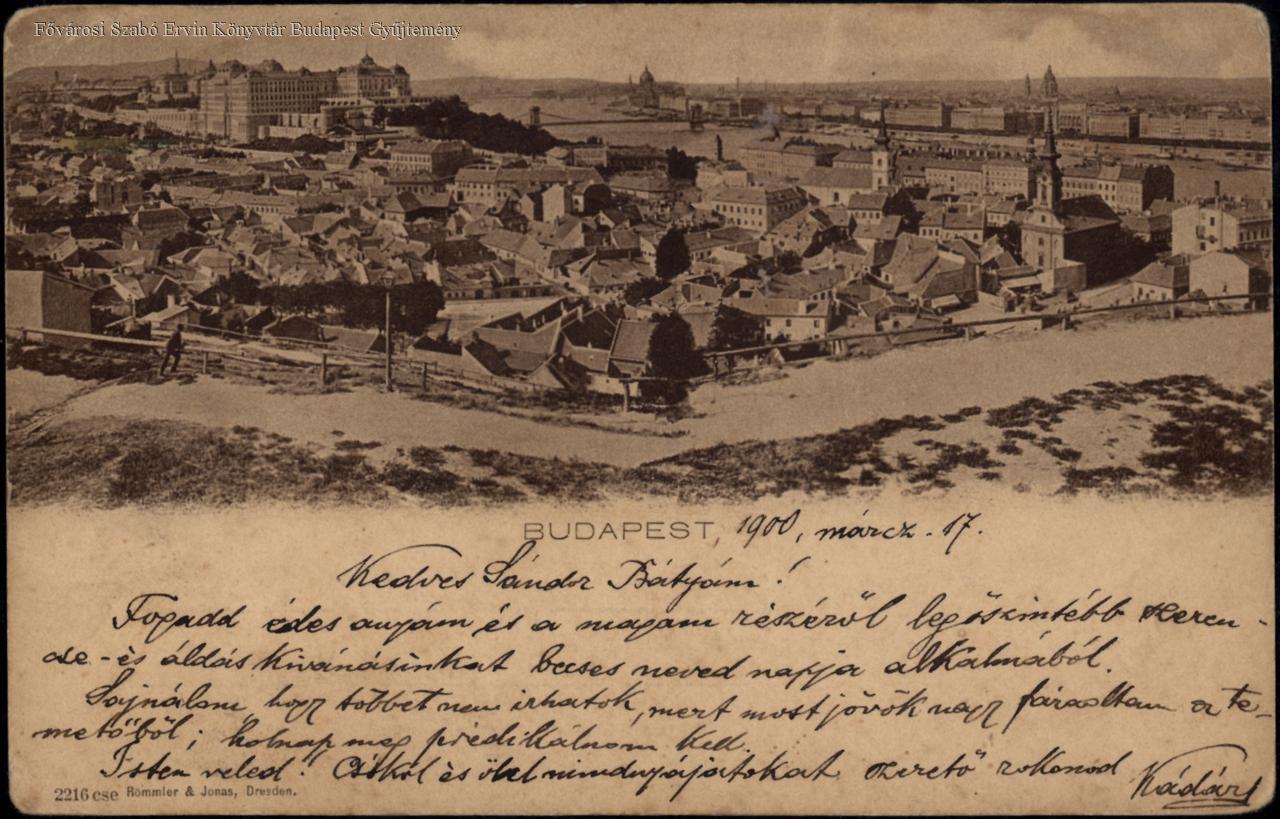 Fővárosi Szabó Ervin Könyvtár Budapest Gyűjtemény
BUDAPEST, 1900, márcz. 17.
Kedves Sándor Bátyám!
Fogadd édes anyám és a magam részéről legőszintébb szeren-
cse- és áldás kivánásinkat becses neved napja alkalmából.
Sajnálom hogy többet nem irhatok, mert most jövök nagy fáradtan a te-
metőből; holnap meg prédikálnom kell.
Isten veled! Csókol és ölel mindnyájatokat szerető rokonod Kádár
2216 cse Römmler & Jonas, Dresden.